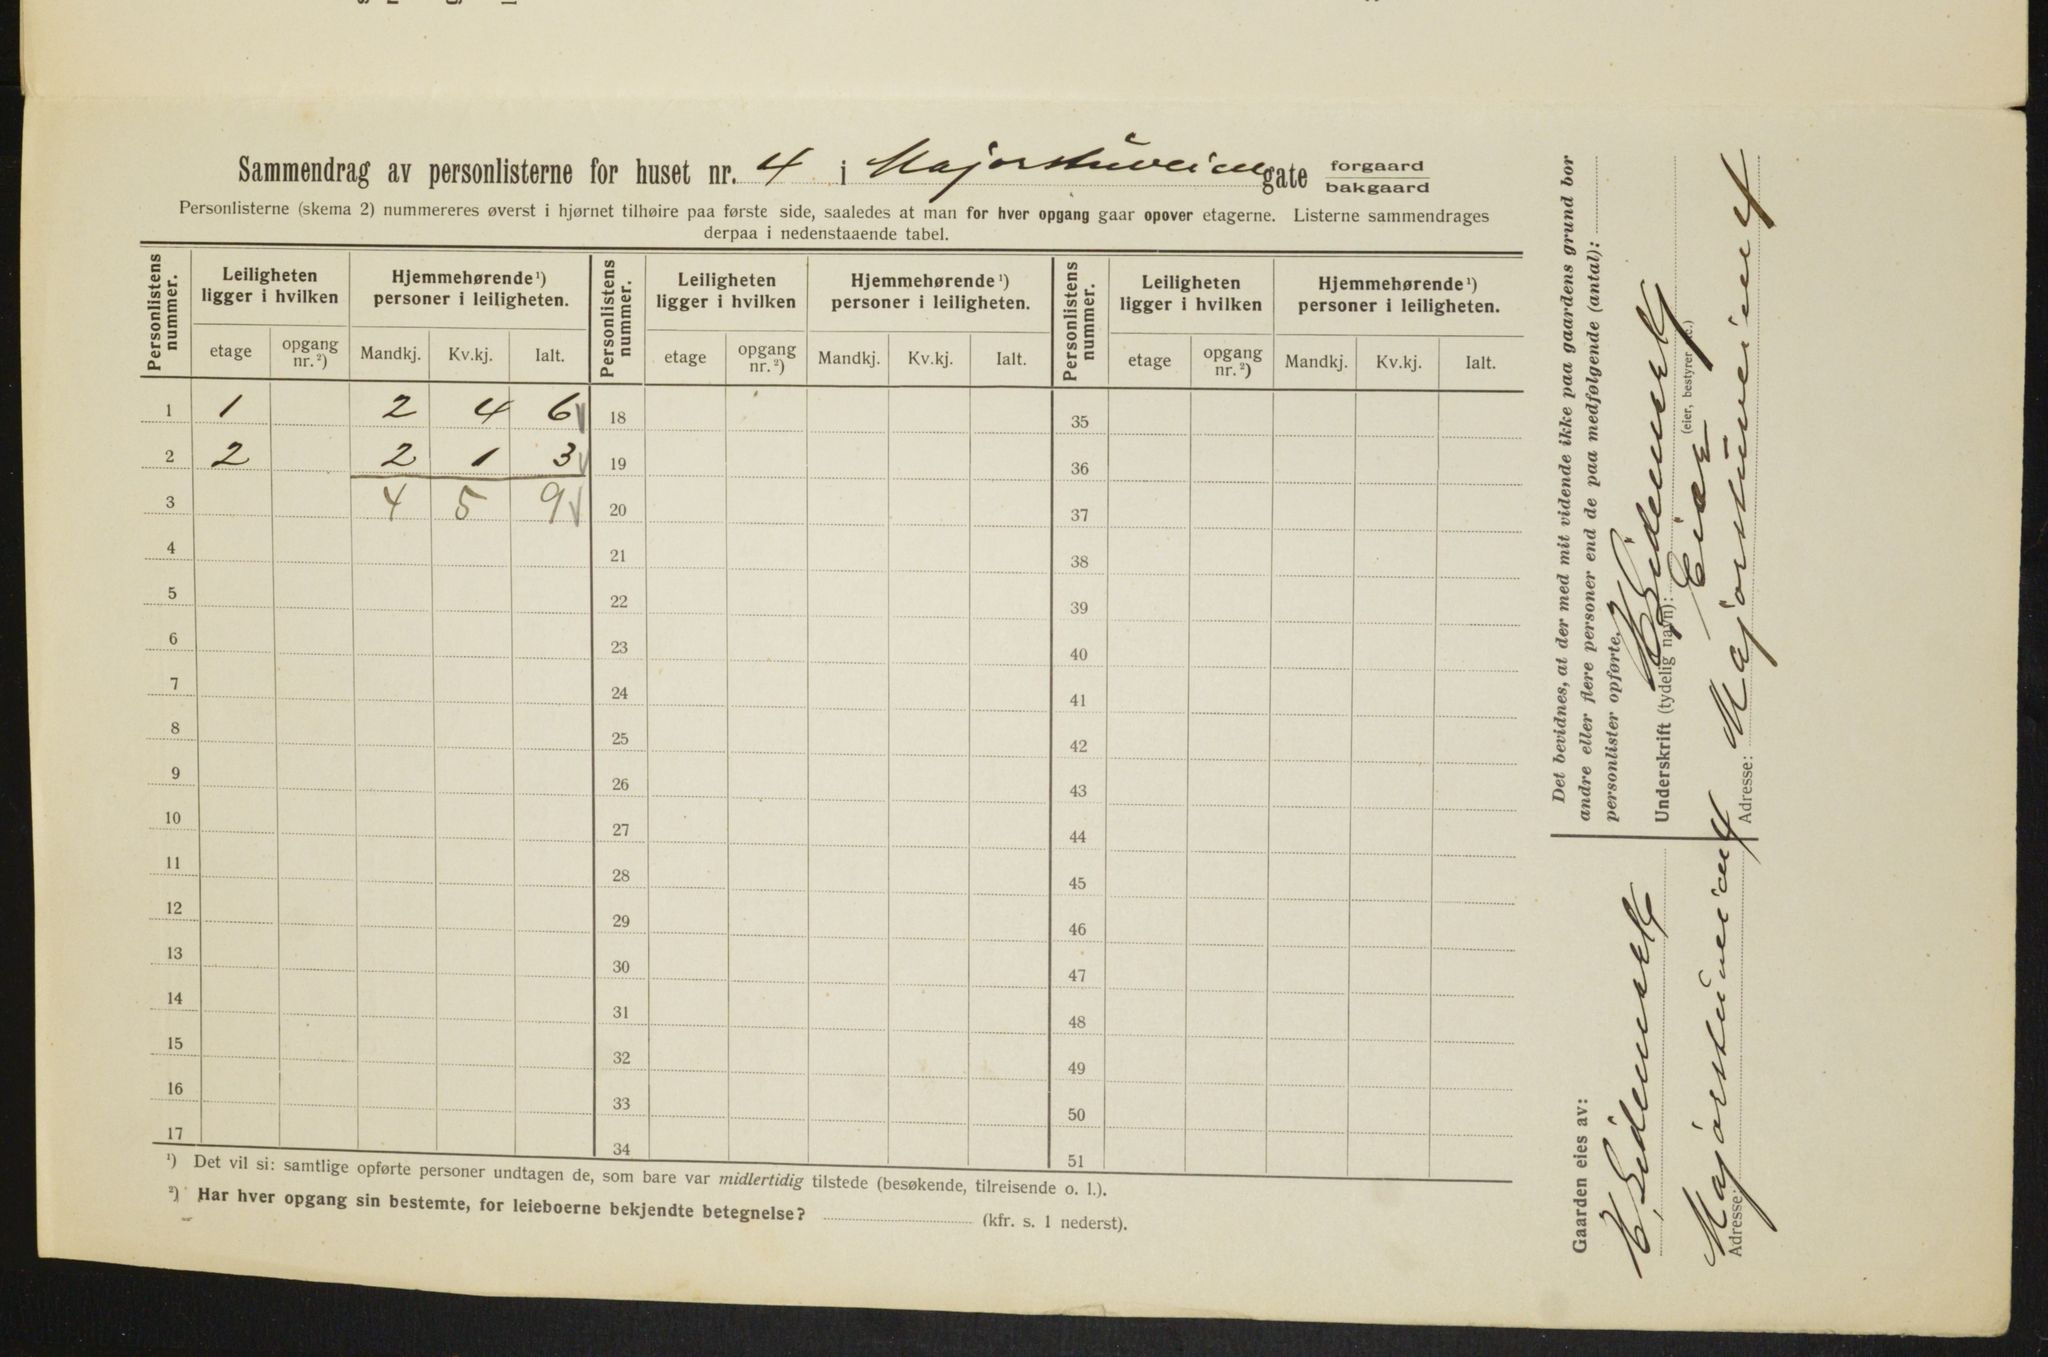 Sammendrag av personlisterne for huset nr. 4 i Majorstuveien gate forgaard bakgaard
Personlisterne (skema 2) nummereres øverst i hjørnet tilhøire paa første side, saaledes at man for hver opgang gaar opover etagerne. Listerne sammendrages
derpaa i nedenstaaende tabel.
Personlistens nummer. Leiligheten ligger i hvilken Hjemmehørende ¹) personer i leiligheten. Personlistens nummer. Leiligheten ligger i hvilken Hjemmehørende ¹) personer i leiligheten. Personlistens nummer. Leiligheten ligger i hvilken Hjemmehørende ¹) personer i leiligheten.
etage opgang nr. ²) Mandkj. Kv.kj. Ialt. etage opgang nr. ²) Mandkj. Kv.kj. Ialt. etage opgang nr. ²) Mandkj. Kv.kj. Ialt.
1 1 2 4 6 18 35
2 2 2 1 3 19 36
3 4 5 9 20 37
4 21 38
5 22 39
6 23 40
7 24 41
8 25 42
9 26 43
10 27 44
11 28 45
12 29 46
13 30 47
14 31 48
15 32 49
16 33 50
17 34 51
¹) Det vil si: samtlige opførte personer undtagen de, som bare var midlertidig tilstede (besøkende, tilreisende o. l.).
²) Har hver opgang sin bestemte, for leieboerne bekjendte betegnelse? (kfr. s. 1 nederst).
Det bevidnes, at der med mit vidende ikke paa gaardens grund bor
andre eller flere personer end de paa medfølgende (antal):
personlister opførte.
Underskrift (tydelig navn):
Eier
(eier, bestyrer etc.)
Adresse: Majorstuveien 4
Gaarden eies av:
Adresse: Majorstuveien 4